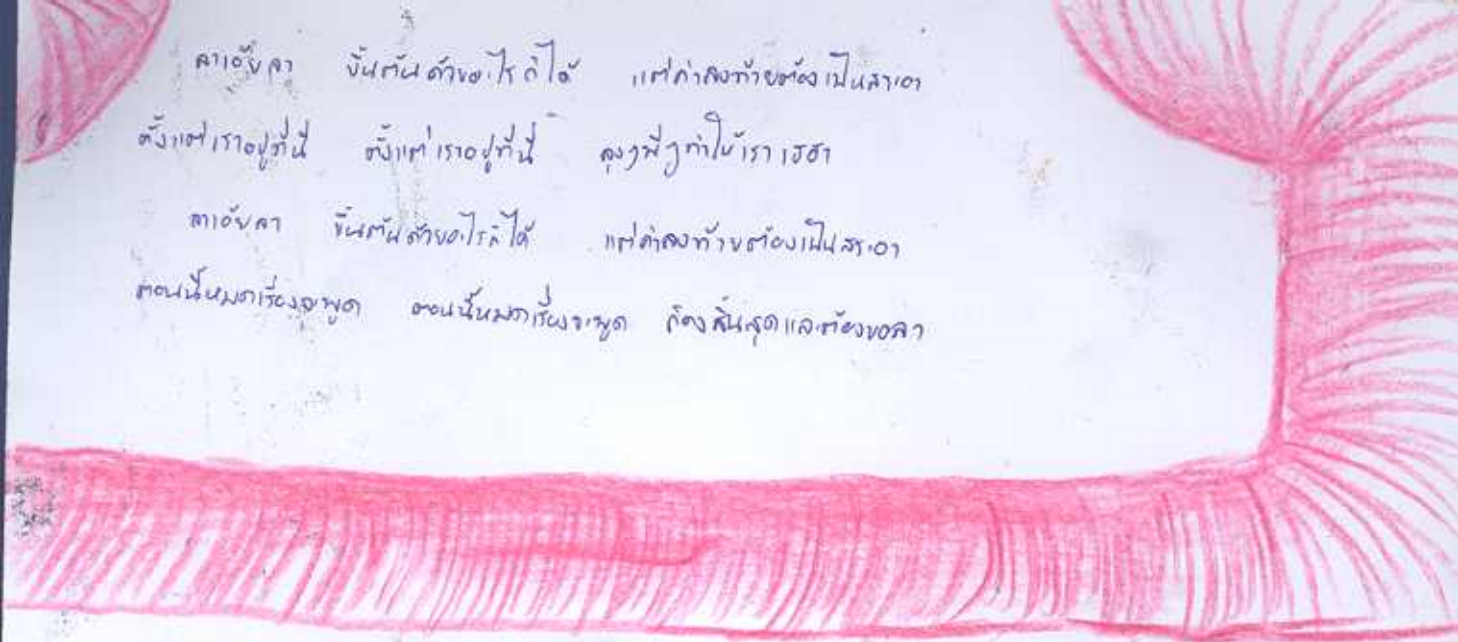 ลาเอ้ยลา ขึ้นต้นด้วยอะไรก็ได้ แต่คำลงท้ายต้องเป็นสระอา
ตั้งแต่เราอยู่ที่นี่ ตั้งแต่เราอยู่ที่นี่ ลุงๆพี่ๆทำให้เราเฮฮา
ลาเอ้ยลา ขึ้นต้นด้วยอะไรก็ได้ แต่คำลงท้ายต้องเป็นสระอา
ตอนนี้หมดเรื่องจะพูด ตอนนี้หมดเรื่องจะพูด ก็คงสิ้นสุดและต้องขอลา